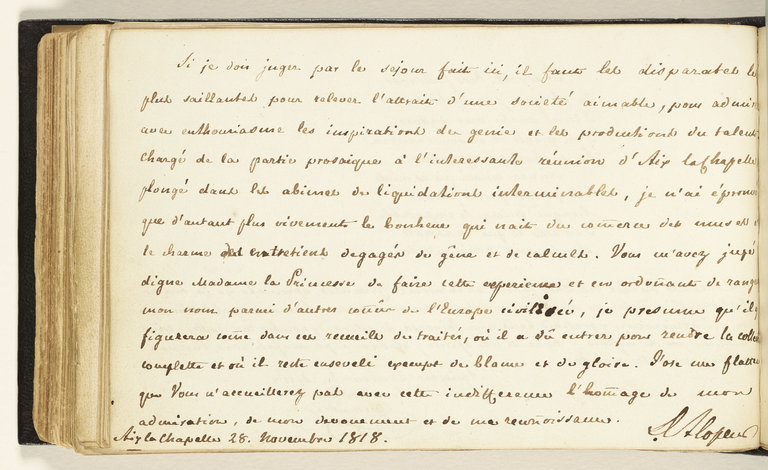 Si je dois juger par le sejour fait ici, il faut les disparates les
plus saillantes pour relever l'attrait d'une societé aimable, pour admirer
avec enthousiasme les inspirations du genie et les productions du talent.
Chargé de la partie prosaique à l'interessante réunion d'Aix la Chapelle
plongé dans les abimes de liquidations interminables, je n'ai éprouvé
que d'autant plus vivement le bonheur qui nait du com̃erce des muses et
le charme des entretiens degagés de gêne et de calculs. Vous m'avez jugé
digne Madame la Princesse de faire cette experience et en ordonant de ranger
mon nom parmi d'autres de l'Europe civilisée, je presume qu'il
figurera com̃e dans ces recueils de traités, où il a dû entrer pour rendre la
complette et où il reste enseveli exempt de blame et de gloire. J'ose me flatter
que Vous n'accueillerez pas avec cette indifference l'hom̃age de mon
admiration, de mon devouement et de ma reconoissance.
Aix la Chapelle 28. Novembre 1818.
Alopeus